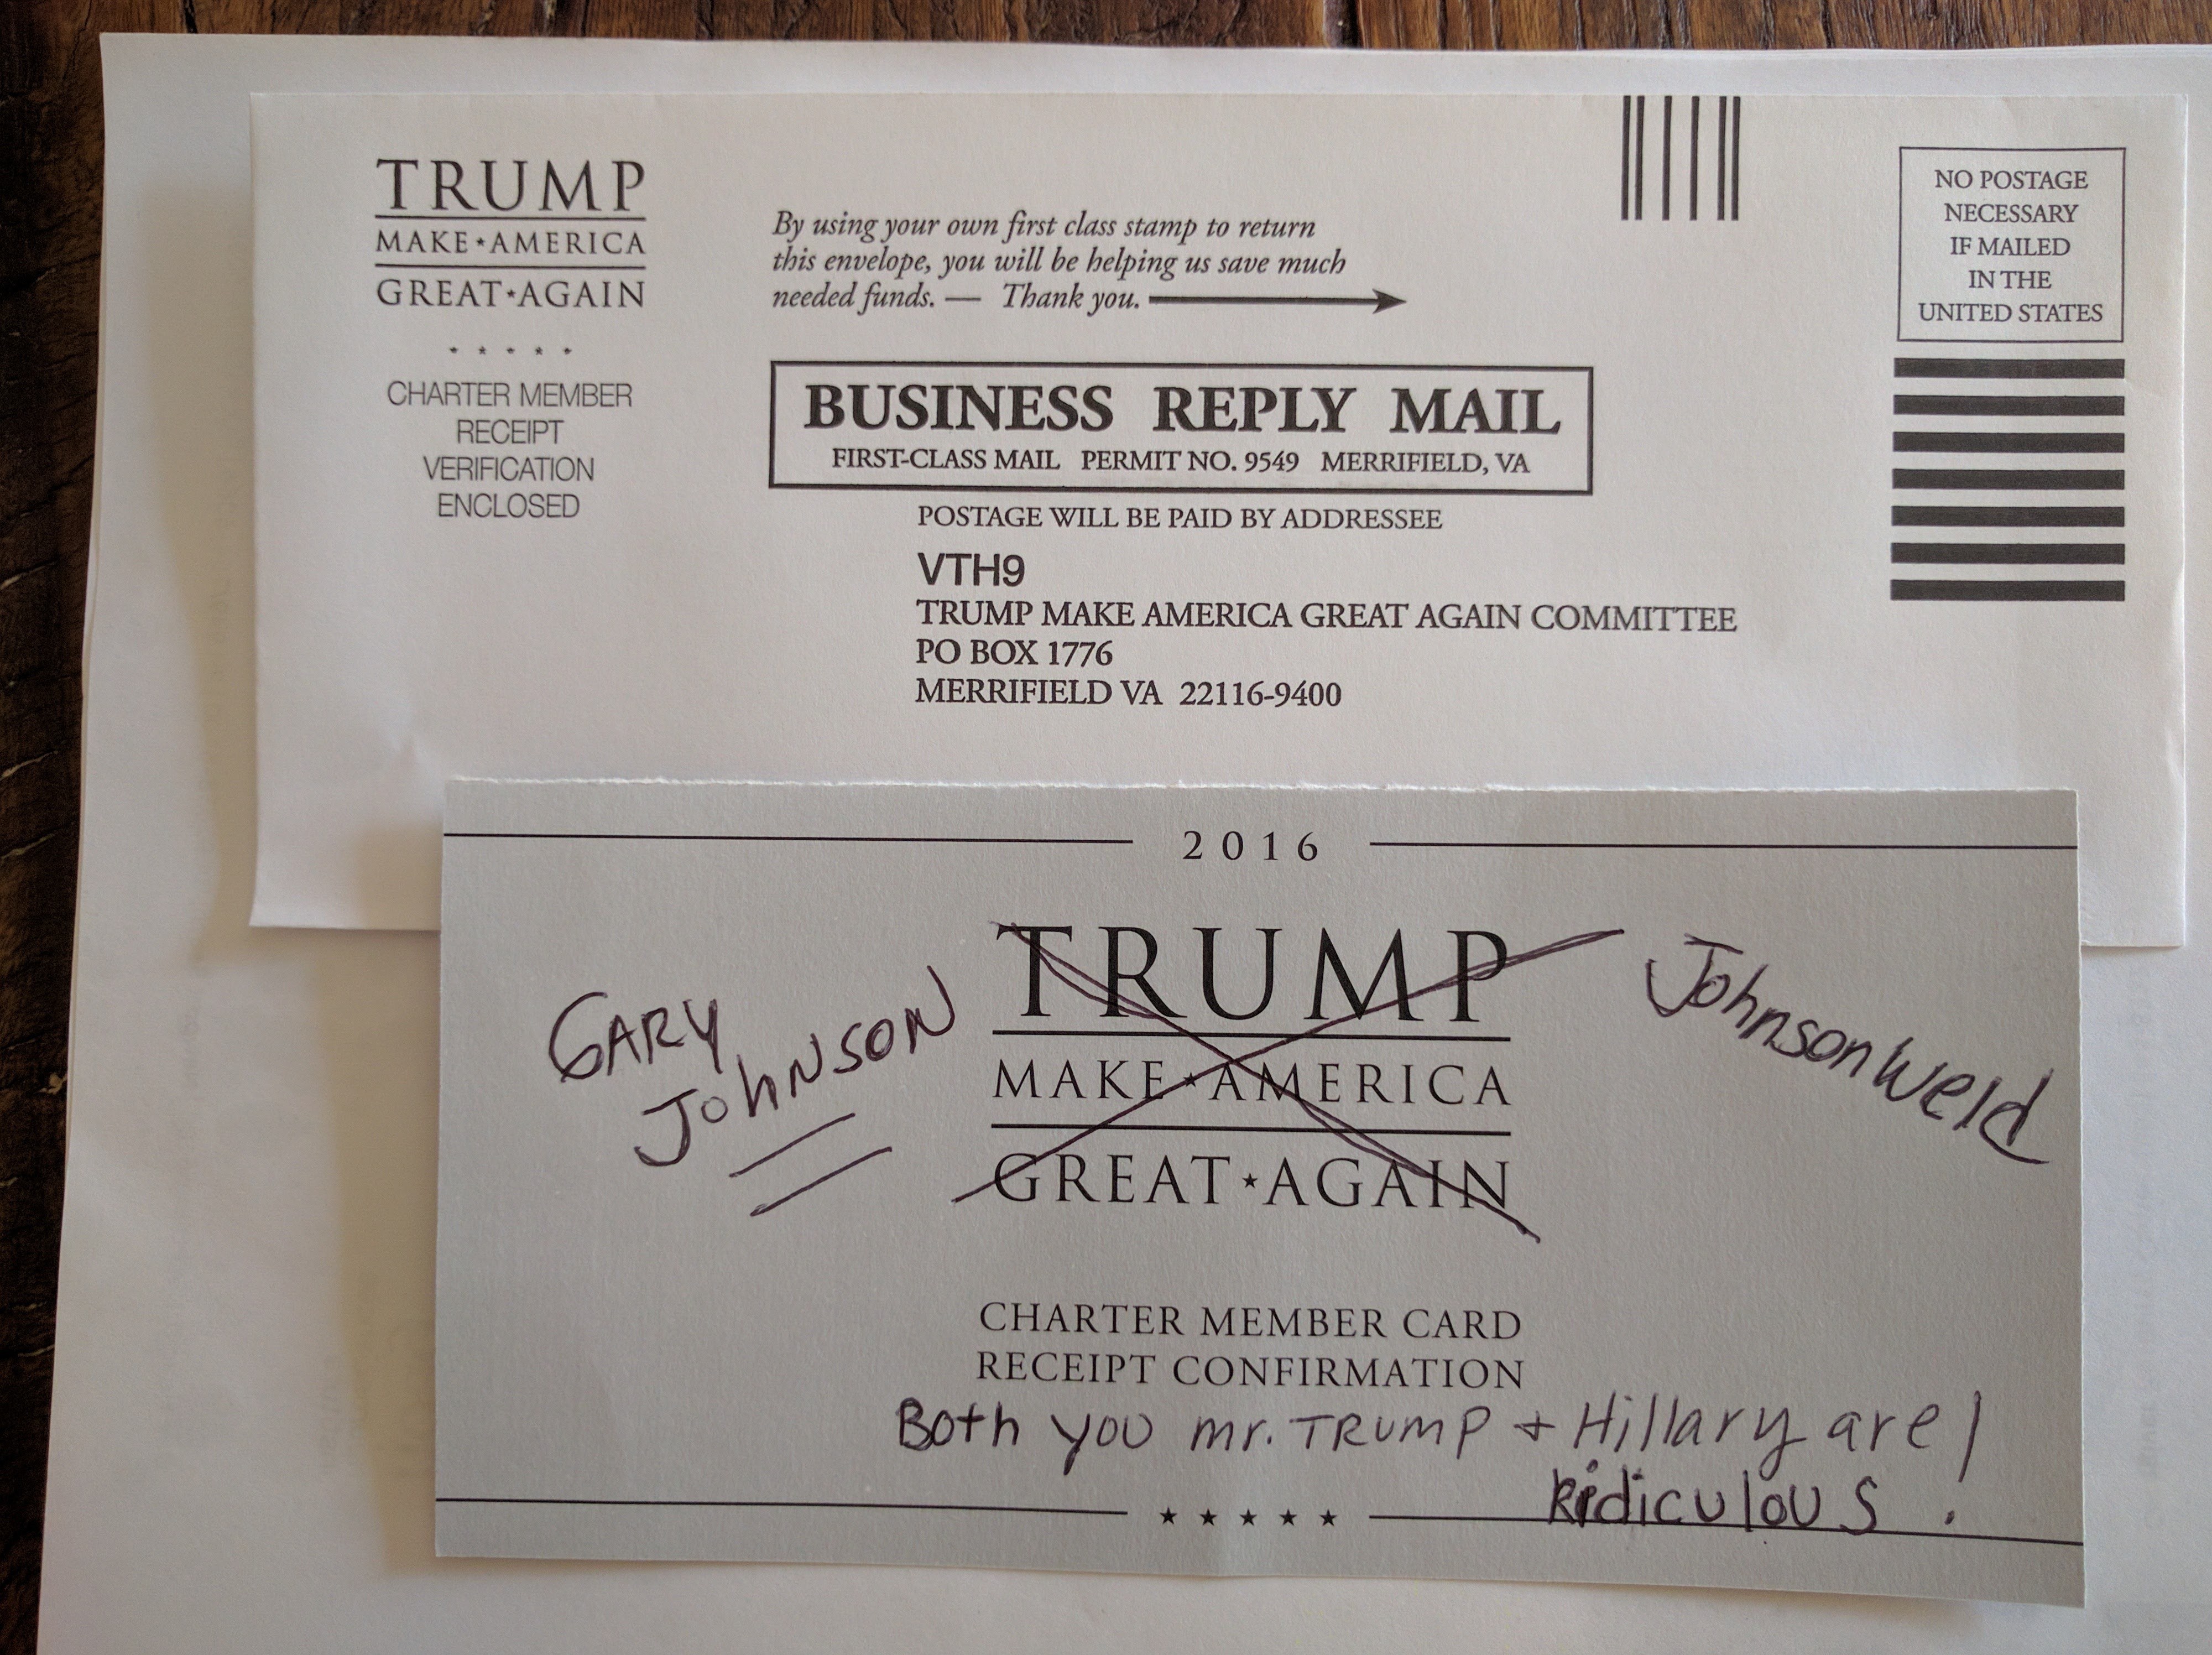 TRUMP
MAKE★AMERICA
GREAT★AGAIN
★ ★ ★ ★ ★
CHARTER MEMBER
RECEIPT
VERIFICATION
ENCLOSED
By using your own first class stamp to return
this envelope, you will be helping us save much
needed funds. — Thank you.
NO POSTAGE
NECESSARY
IF MAILED
IN THE
UNITED STATES
BUSINESS REPLY MAIL
FIRST-CLASS MAIL PERMIT NO. 9549 MERRIFIELD, VA
POSTAGE WILL BE PAID BY ADDRESSEE
VTH9
TRUMP MAKE AMERICA GREAT AGAIN COMMITTEE
PO BOX 1776
MERRIFIELD VA 22116-9400
2016
TRUMP
MAKE★AMERICA
GREAT★AGAIN
GARY
JOHNSON
Johnson Weld
CHARTER MEMBER CARD
RECEIPT CONFIRMATION
Both you mr. TRUMP + Hillary are
Ridiculous!
★ ★ ★ ★ ★